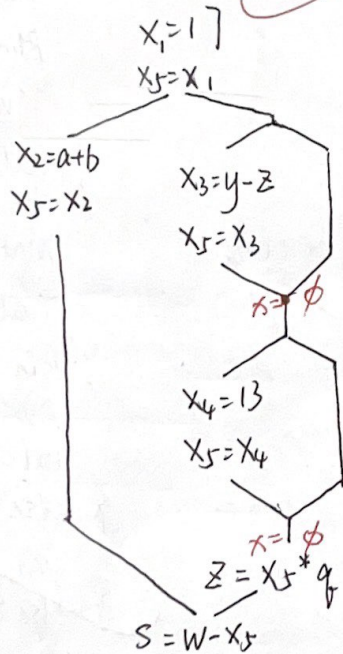 x₁=17
x₅=x₁
x₂=a+b
x₅=x₂
x₃=y-z
x₅=x₃
x=φ
x₄=13
x₅=x₄
x=φ
z=x₅*q
s=w-x₅